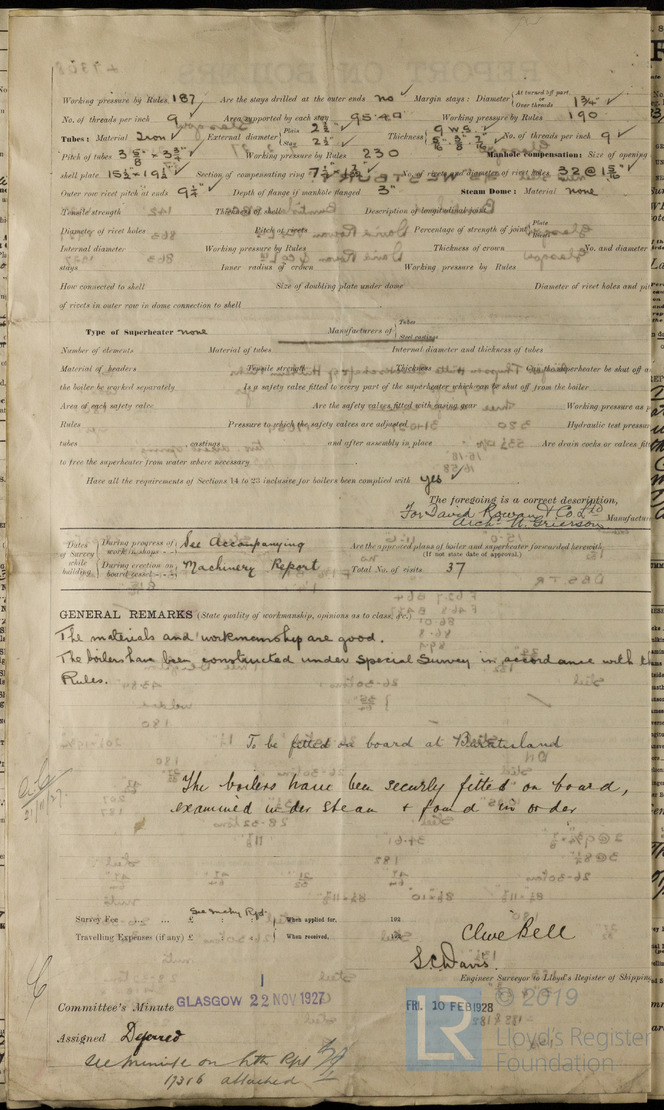 Working pressure by Rules 187 Are the stays drilled at the outer ends no Margin stays: Diameter { At turned off part or Over threads 1¾"
No. of threads per inch 9 Area supported by each stay 95.40 Working pressure by Rules 190
Tubes: Material Iron External diameter { Plain 2½" Stay 2½" Thickness { 9 W.G. 5/16" 3/8" 7/16" No. of threads per inch 9
Pitch of tubes 3 5/8" x 3¾" Working pressure by Rules 230 Manhole compensation: Size of opening
shell plate 15½" x 19½" Section of compensating ring No. of rivets and diameter of rivet holes 32 @ 1 5/16"
Outer row rivet pitch at ends 9¼" Depth of flange if manhole flanged 3" Steam Dome: Material none
Tensile strength Thickness of shell Description of longitudinal joint
Diameter of rivet holes Pitch of rivets Percentage of strength of joint { Plate
Internal diameter Working pressure by Rules Thickness of crown No. and diameter
stays Inner radius of crown Working pressure by Rules
How connected to shell Size of doubling plate under dome Diameter of rivet holes and
of rivets in outer row in dome connection to shell
Type of Superheater none Manufacturers of { Tubes Steel castings
Number of elements Material of tubes Internal diameter and thickness of tubes
Material of headers Tensile strength Thickness Can the superheater be shut off
the boiler be worked separately Is a safety valve fitted to every part of the superheater which can be shut off from the boiler
Area of each safety valve Are the safety valves fitted with easing gear Working pressure as
Rules Pressure to which the safety valves are adjusted Hydraulic test pressure
tubes castings and after assembly in place Are drain cocks or valves
to free the superheater from water where necessary
Have all the requirements of Sections 14 to 23 inclusive for boilers been complied with yes
The foregoing is a correct description,
For David Rowan & Co. Ltd
Arch. W. Grierson Manufacturer
Dates of Survey while building { During progress of work in shops - - See Accompanying Are the approved plans of boiler and superheater forwarded herewith (If not state date of approval.)
During erection on board vessel - - - Machinery Report Total No. of visits 37
GENERAL REMARKS (State quality of workmanship, opinions as to class, &c.)
The materials and workmanship are good.
The boilers have been constructed under special survey in accordance with the
Rules.
To be fitted on board at Burntisland
The boilers have been securely fitted on board,
examined under steam & found in order
21/11/27.
Survey Fee ... ... £ See Mchy Rpt. When applied for, 192
Travelling Expenses (if any) £ When received, 192
Clive Bell
S.C. Davis.
Engineer Surveyor to Lloyd's Register of Shipping
Committee's Minute GLASGOW 22 NOV 1927 FRI. 10 FEB 1928
Assigned Deferred
See minute on
17316 attached
LR
© 2019
Lloyd's Register
Foundation